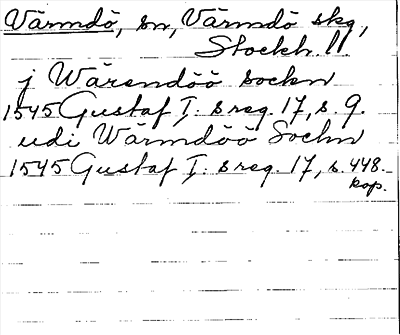 Värmdö, sn, Värmdö skg,
Stockh. ll.
j Wärendöö sockn
1545 Gustaf I: s reg. 17, s. 9.
udi Wärmdöö Sockn
1545 Gustaf I: s reg. 17, s. 448.
kop.